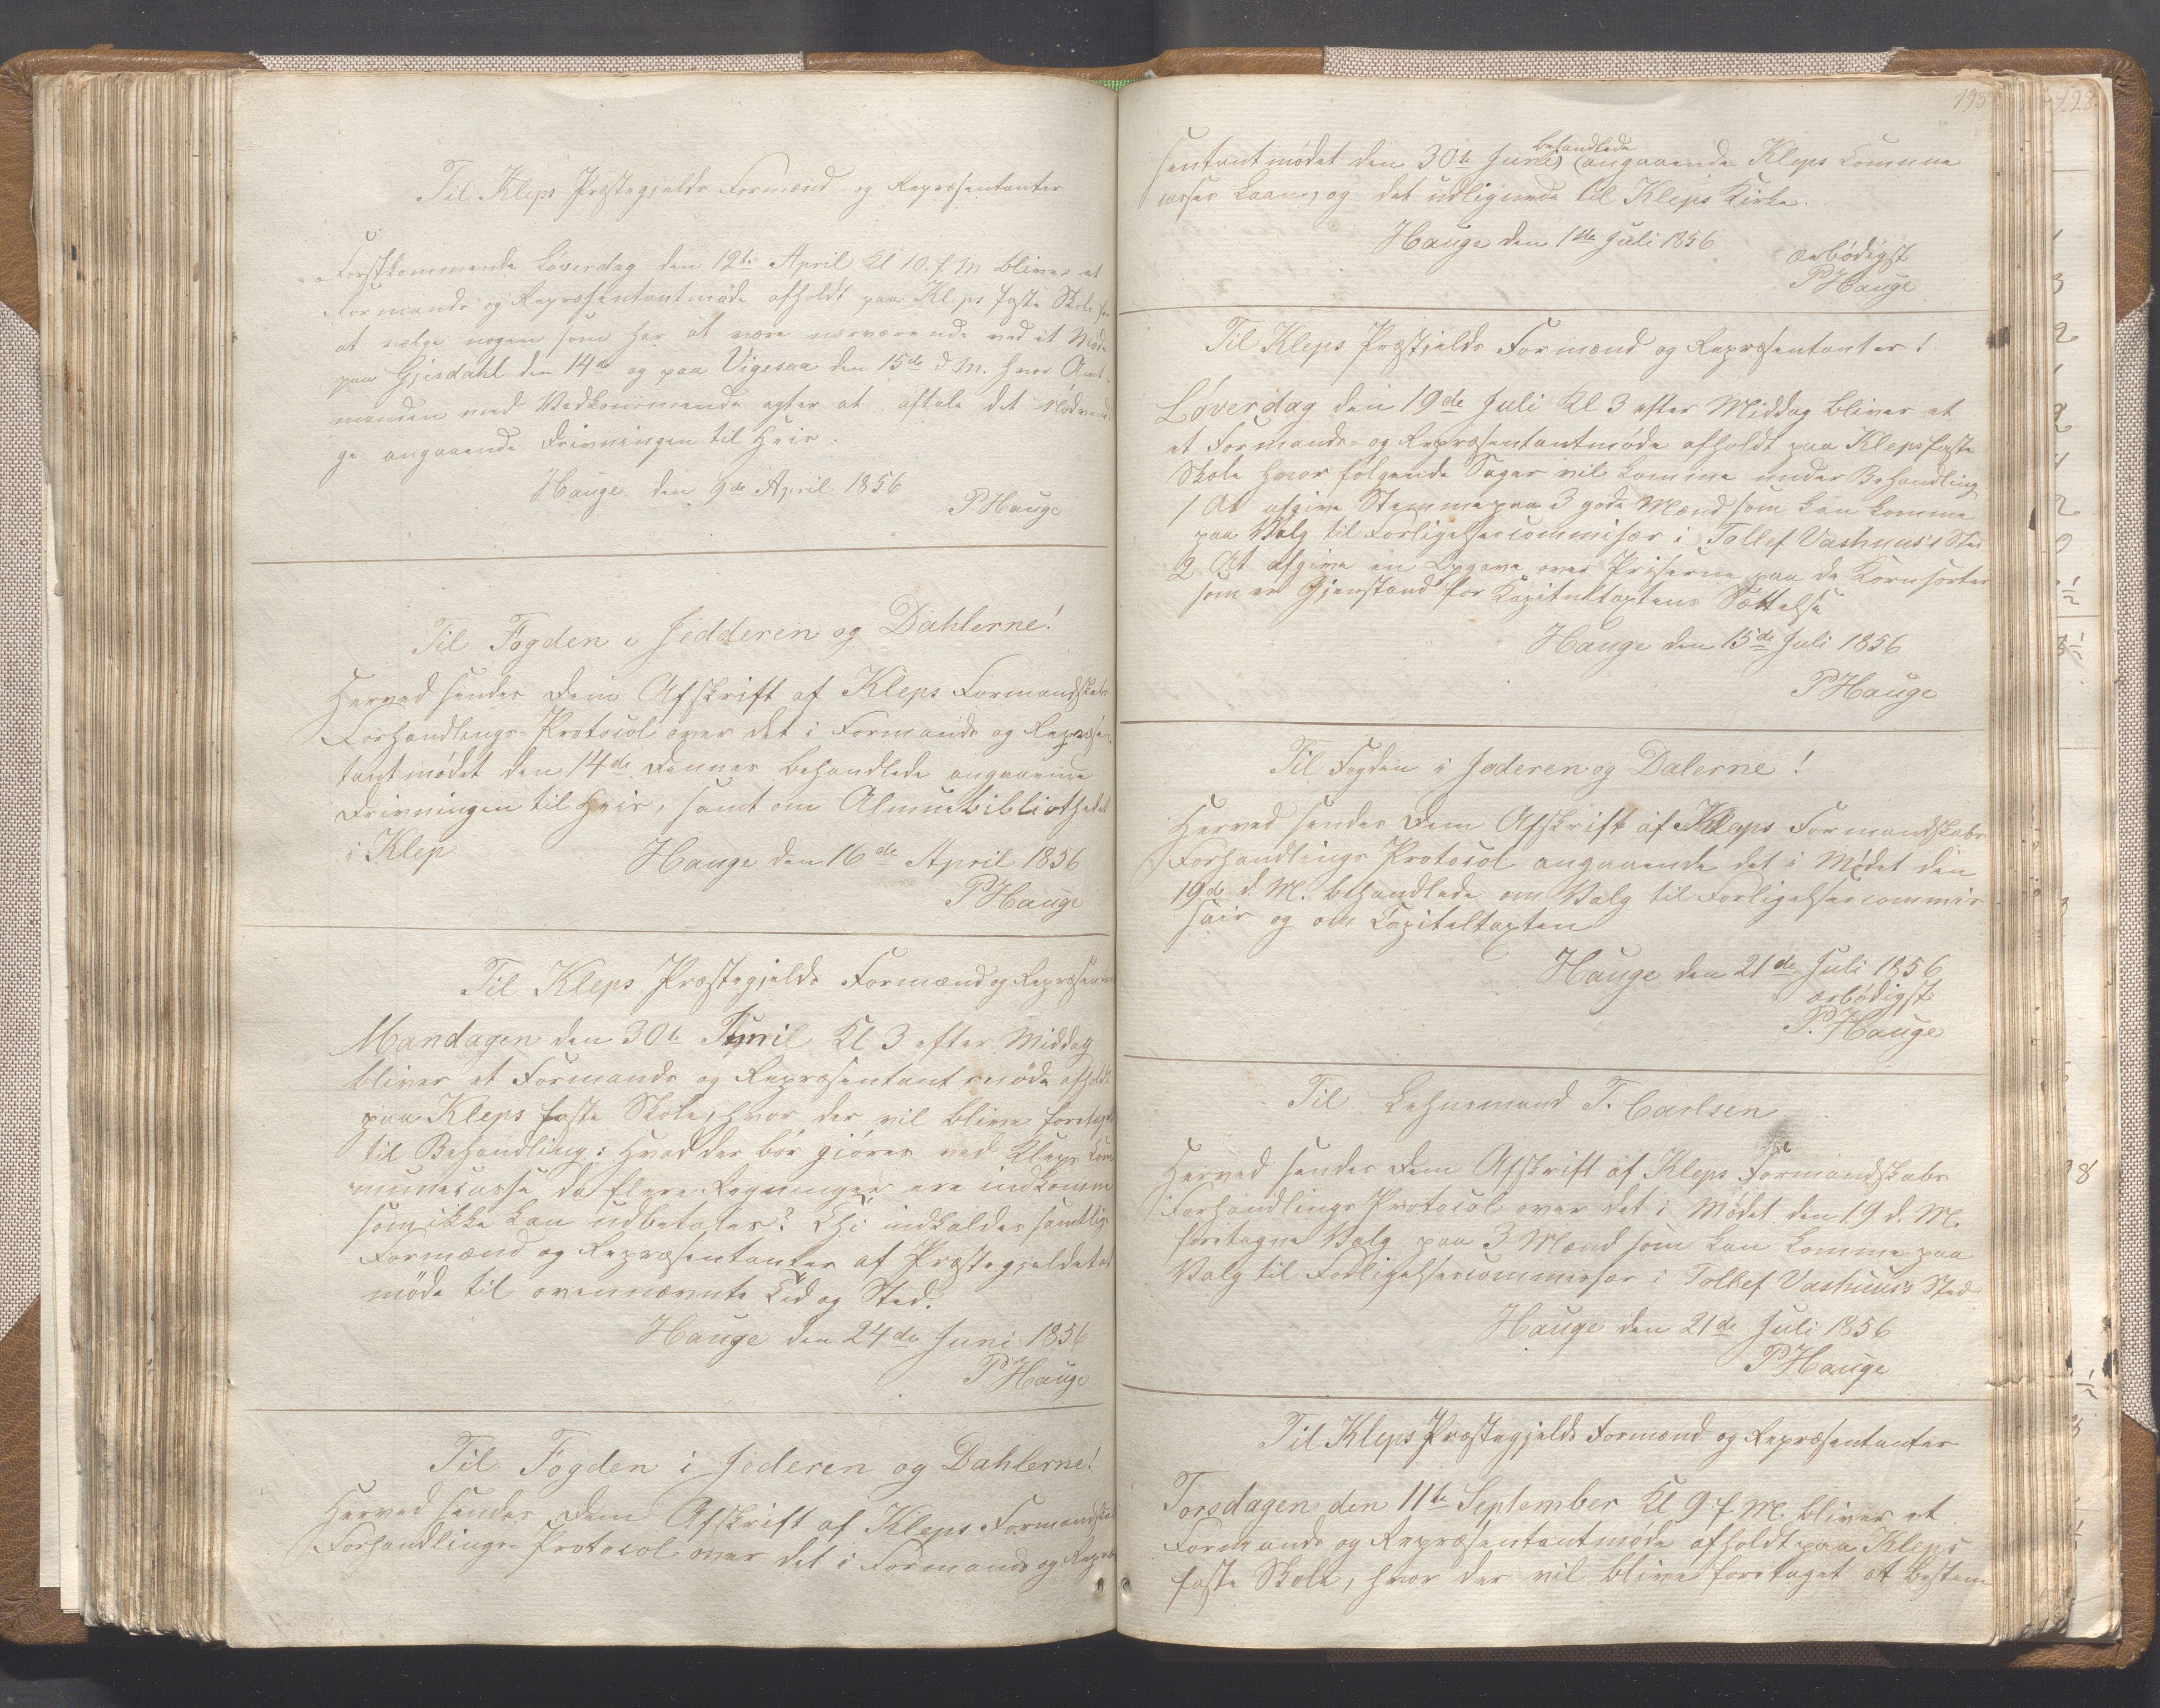 Til Kleps Præstegjelds Formænd og Repræsentanter
Førstkommende Løverdag den 12te April Kl 10. f. M bliver et
Formands og Repræsentantmøde afholdt paa Kleps faste Skole for
at vælge nogen som har at være nærværende ved et Møde
paa Gjesdahl den 14de og paa Vigesaa den 15de d. M. hvor Amt-
manden med Vedkommende agter at aftale det Nødvendi-
ge angaaende Drivningen til Heie.
Hauge den 9de April 1856
P Hauge
Til Fogden i Jedderen og Dahlerne!
Herved sendes Dem Afskrift af Kleps Formandskabs
Forhandlings-Protocol over det i Formands og Repræsen-
tantmødet den 14de dennes behandlede angaaende
Drivningen til Heie, samt om Almuebibliotheket
i Klep
Hauge den 16de April 1856
P Hauge
Til Kleps Præstegjelds Formænd og Repræsen
Mandagen den 30te Juni Kl 3 efter Middag
bliver et Formands og Repræsentantmøde afholdt
paa Kleps faste Skole, hvor der vil blive foretaget
til Behandling: Hvad der bør gjøres ved Kleps Com
munecasse da flere Regninger ere indkomm
som ikke kan udbetales? Thi indkaldes samtlige
Formænd og Repræsentanter af Præstegjeldet at
møde til ovennævnte Tid og Sted.
Hauge den 24de Juni 1856
P Hauge
Til Fogden i Jederen og Dahlerne!
Herved sendes Dem Afskrift af Kleps Formandska
Forhandlings-Protocol over det i Formands og Repræ
193
sentantmødet den 30te Juni behandlede angaaende Kleps Comune
casses Laan, og det udlignede til Kleps Kirke.
Hauge den 1ste Juli 1856
ærbødigst
P Hauge
Til Kleps Præstjelds Formænd og Repræsentanter!
Løverdag den 19de Juli Kl 3 efter Middag bliver et
et Formands- og Repræsentantmøde afholdt paa Kleps faste
Skole hvor følgende Sager vil komme under Behandling
1 At afgive Stemme paa 3 gode Mænd som kan komme
paa Valg til Forligelsescommisær i Tollef Vashuus's Sted
2 At afgive en Opgave over Priserne paa de Kornsorter
som er Gjenstand for Kapiteltaxtens Sættelse
Hauge den 15de Juli 1856
P Hauge
Til Fogden i Jederen og Dalerne!
Herved sendes Dem Afskrift af Kleps Formandskabs
Forhandlings Protocol angaaende det i Mødet den
19de d. M. behandlede om Valg til Forligelsescommis
sair og om Capiteltaxten
Hauge den 21de Juli 1856
ærbødigst
P. Hauge
Til Lehnsmand T. Carlsen
Herved sendes Dem Afskrift af Kleps Formandskabs
Forhandlings Protocol over det i Mødet den 19 d. M.
foretagne Valg paa 3 Mænd som kan komme paa
Valg til Forligelsescommersær i Tollef Vashuus's Sted
Hauge den 21de Juli 1856
P Hauge
Til Kleps Præstegjelds Formænd og Repræsentanter
Torsdagen den 11te September Kl 9 f. M. bliver et
Formands og Repræsentantmøde afholdt paa Kleps
faste Skole, hvor der vil blive foretaget at bestem